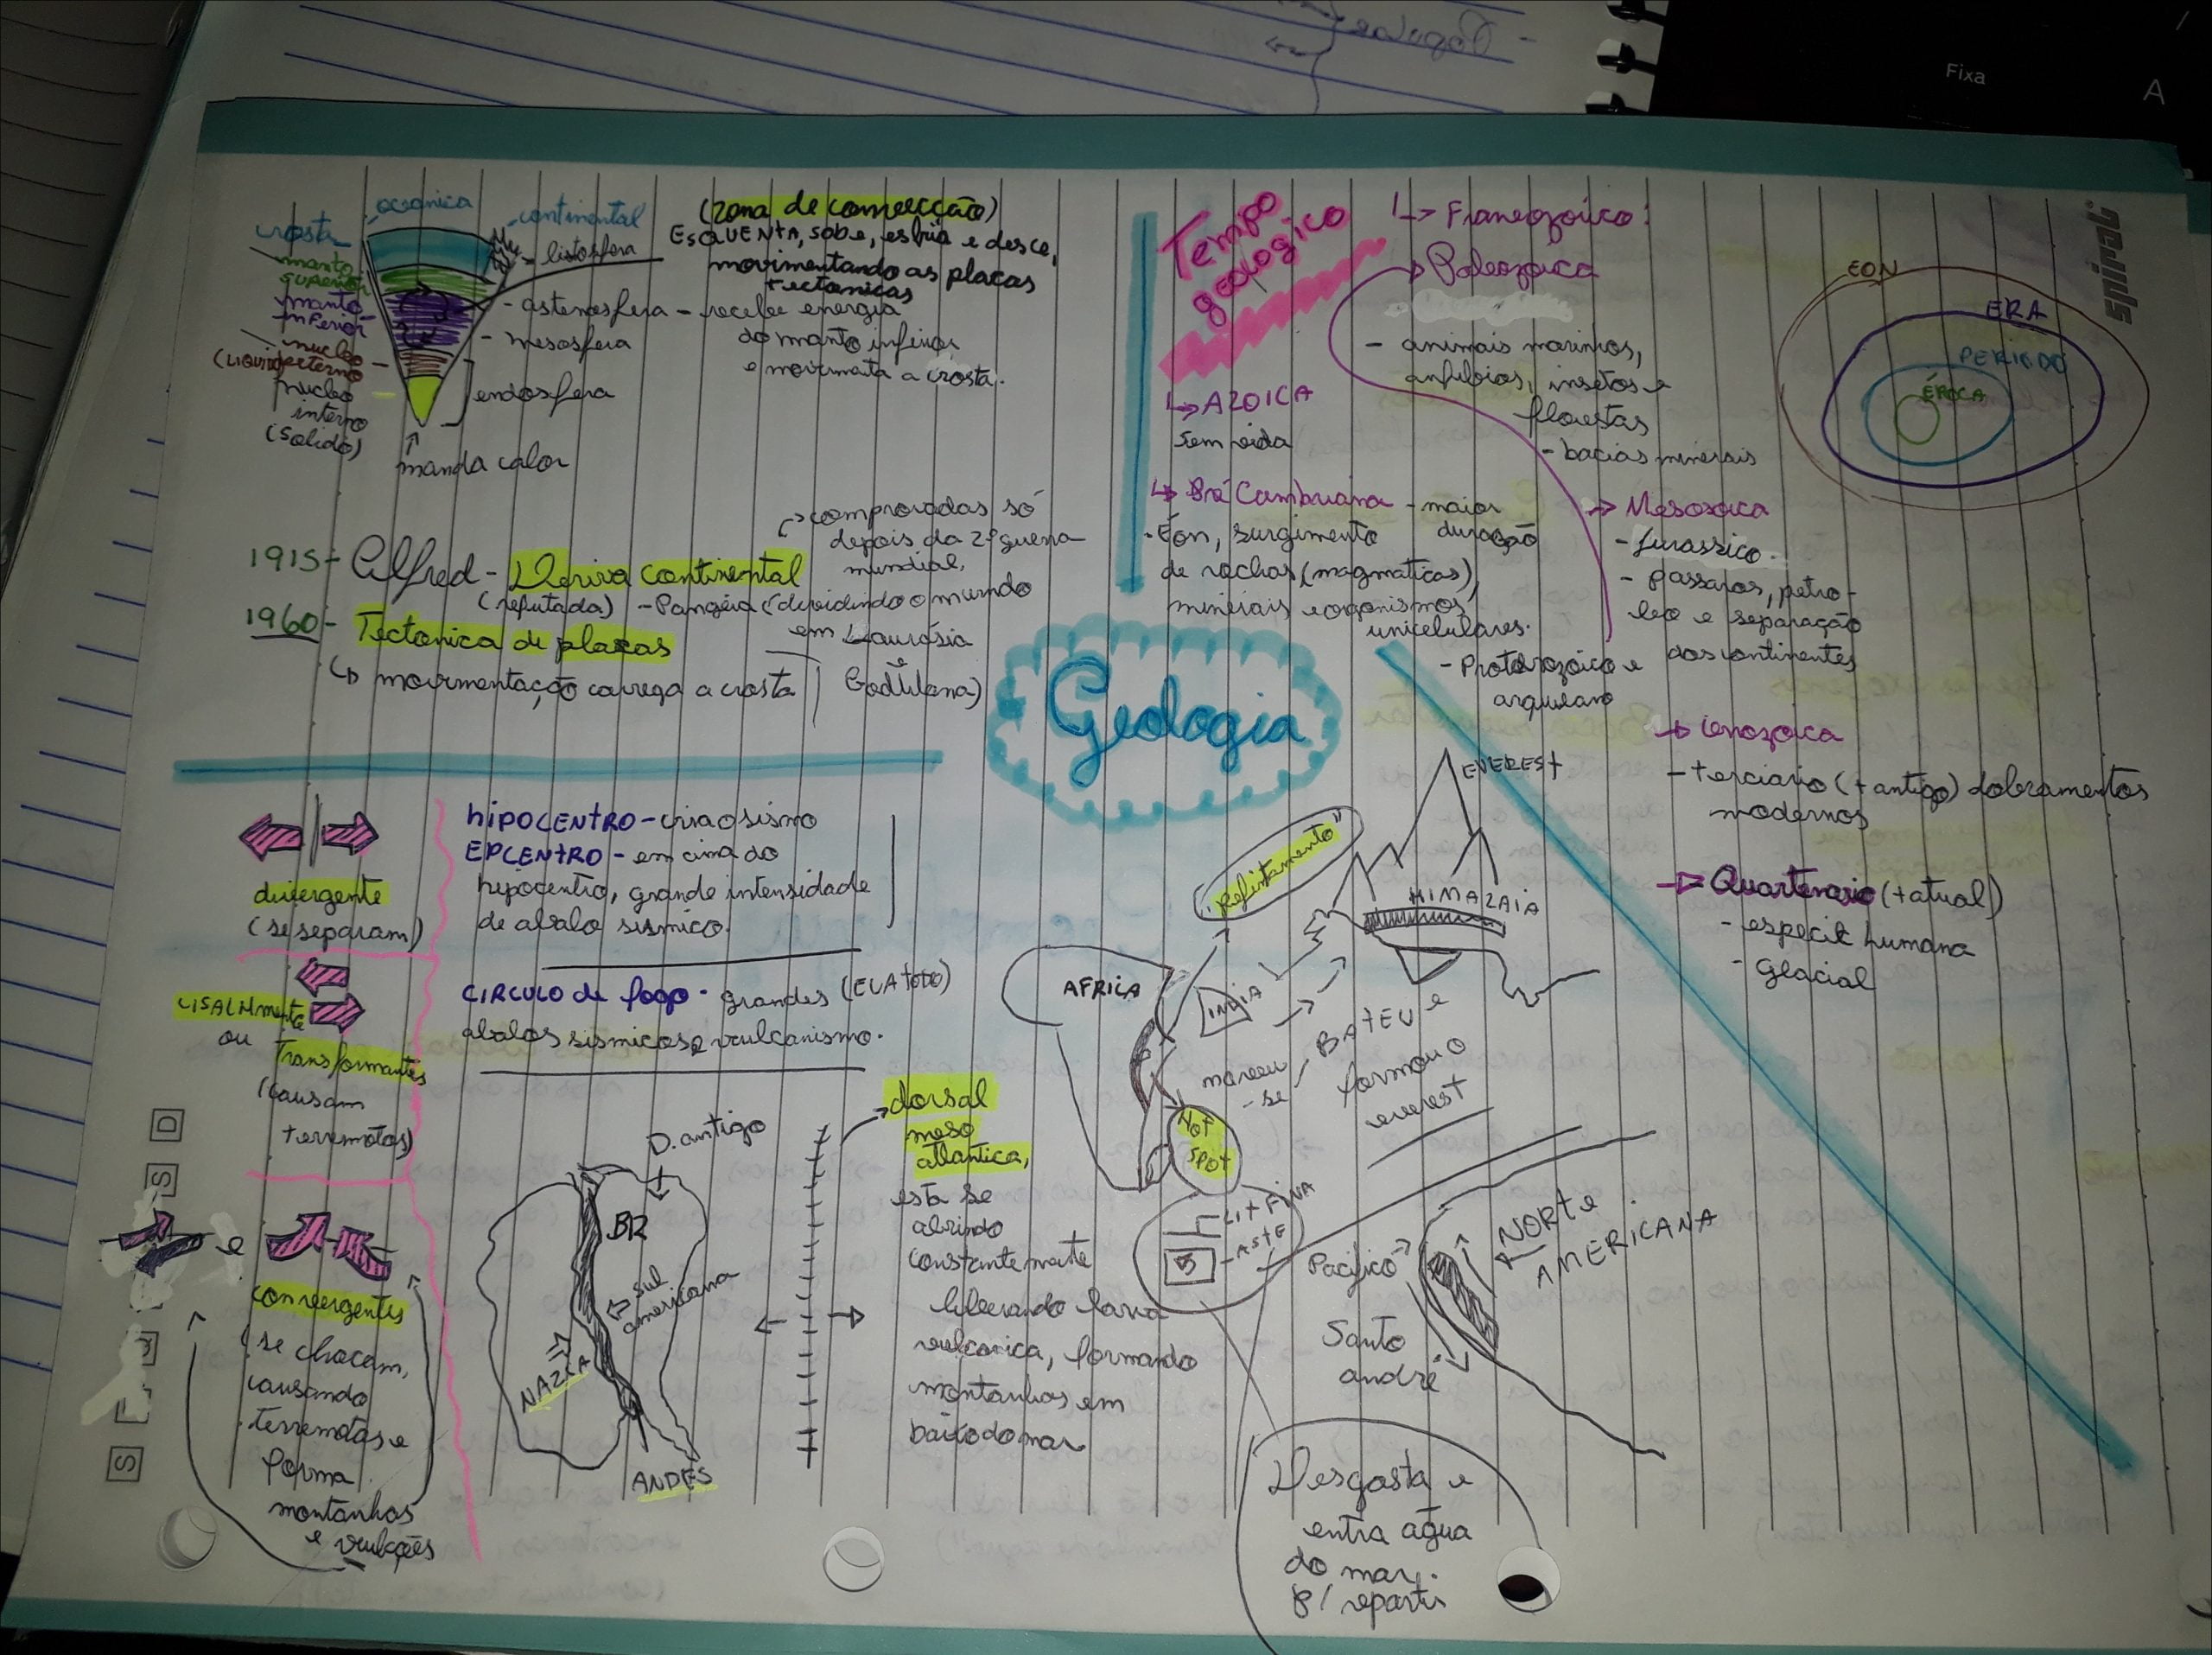 Fixa
A
spiral
oceanica
continental
crosta
listosfera
manto
superior
manto
inferior
nucleo
(Liquido) externo
nucleo
interno
(solido)
astenosfera - recebe energia
do manto inferior
e movimenta a crosta.
- mesosfera
endosfera
manda calor
(zona de convecção)
ESQUENTA, sobe, esfria e desce,
movimentando as placas
tectonicas
1915 - Alfred - Deriva continental
(refutada) - Pangéia (dividindo o mundo
em Laurásia
e
comprovadas só
depois da 2ª guerra
mundial,
1960 - Tectonica de placas
↳ movimentação carrega a crosta
Geologia
Tempo
geologico
↳ AZOICA
sem vida
↳ Pré Cambriana - maior
duração
- Éon, surgimento
de rochas (magmaticas),
minerais e organismos
unicelulares.
- Proterozoico e
arqueano
↳ Faneozoico:
→ Paleozoica
- animais marinhos,
anfibios, insetos e
florestas
- bacias minerais
→ Mesozoica
- Jurassico.
- passaros, petro-
leo e separação
dos continentes
→ Cenozoica
- terciario (+ antigo) dobramentos
modernos
→ Quartenario (+ atual)
- especie humana
- Glacial
EON
ERA
PERIODO
ÉPOCA
divergente
(se separam)
ou Transformantes
(causam
terremotos)
e
convergentes
(se chocam,
causando
terremotos e
forma
montanhas
e vulcões
hiPOCENTRO - cria o sismo
EPCENTRO - em cima do
hipocentro, grande intensidade
de abalo sismico.
CIRCULO de fogo - grandes
abalos sismicos e vulcanismo.
D. antigo
BR
sul
americana
NAZCA
ANDES
dorsal
meso
atlantica,
esta se
abrindo
constantemente
liberando lava
vulcanica, formando
montanhas em
baixo do mar
EVEREST
HIMALAIA
AFRICA
INDIA
moveu
- se
BATEU e
formou o
everest
HOT
SPOT
LIT FINA
ASTE
Pacifico
NORTE
AMERICANA
Santo
andré
Desgasta e
entra agua
do mar.
p/ repartir
D
S
S